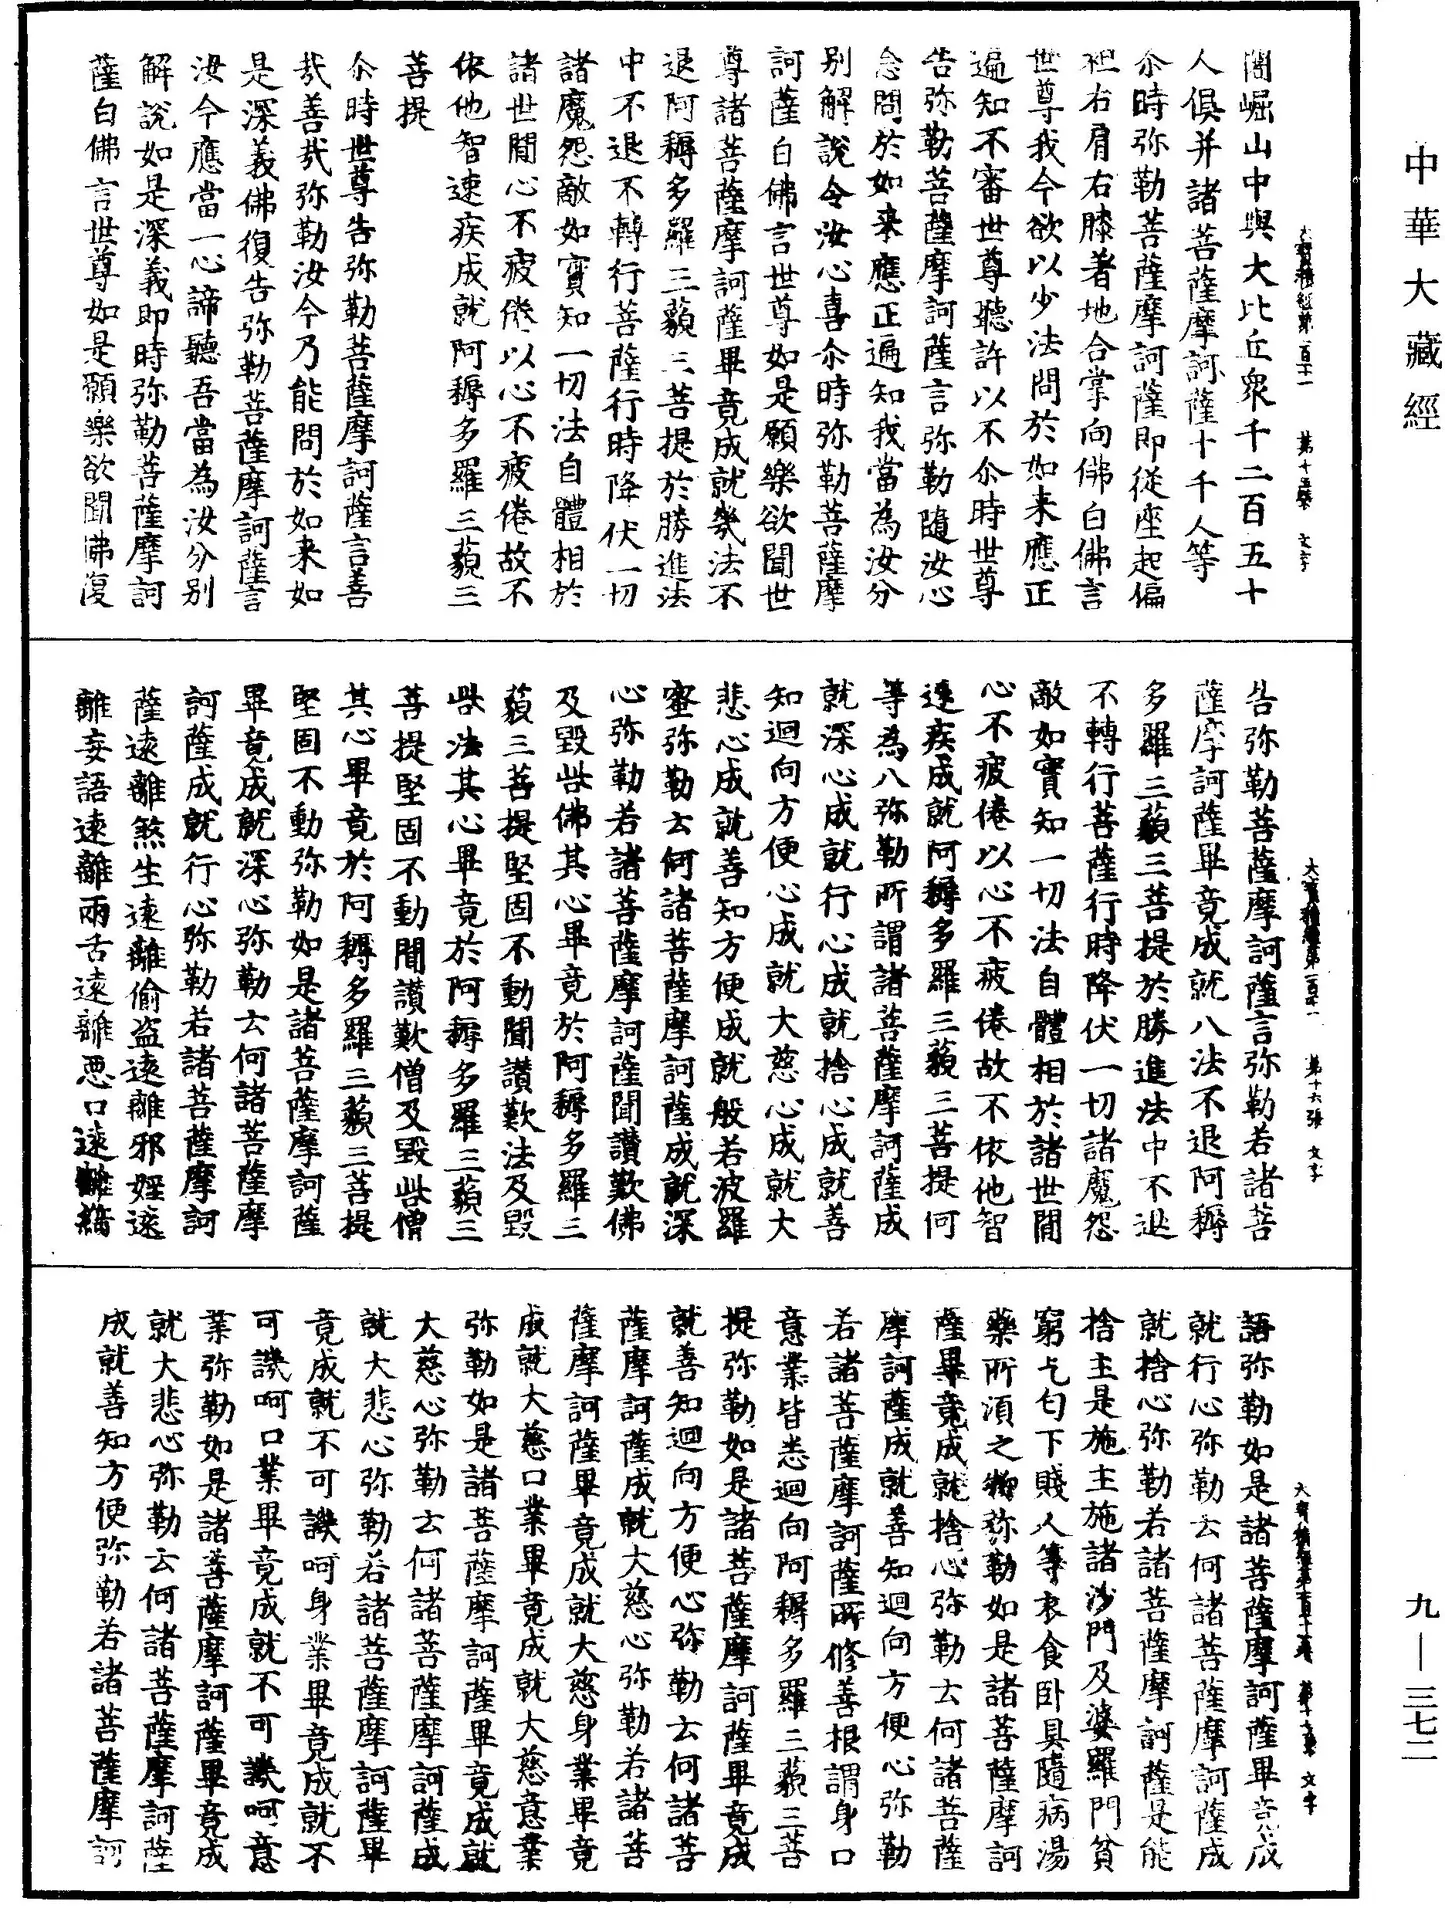 中華大藏經
九—三七二
大寶積經第一百十一 第十五張 文字
闍崛山中與大比丘衆千二百五十
人俱并諸菩薩摩訶薩十千人等
尒時弥勒菩薩摩訶薩即從座起偏
袒右肩右膝著地合掌向佛白佛言
世尊我今欲以少法問於如来應正
遍知不審世尊聽許以不尒時世尊
告弥勒菩薩摩訶薩言弥勒隨汝心
念問於如来應正遍知我當為汝分
别解說令汝心喜尒時弥勒菩薩摩
訶薩白佛言世尊如是願樂欲聞世
尊諸菩薩摩訶薩畢竟成就幾法不
退阿耨多羅三藐三菩提於勝進法
中不退不轉行菩薩行時降伏一切
諸魔怨敵如實知一切法自體相於
諸世間心不疲惓以心不疲惓故不
依他智速疾成就阿耨多羅三藐三
菩提
尒時世尊告弥勒菩薩摩訶薩言善
哉善哉弥勒汝今乃能問於如来如
是深義佛復告弥勒菩薩摩訶薩言
汝今應當一心諦聽吾當為汝分别
解說如是深義即時弥勒菩薩摩訶
薩白佛言世尊如是願樂欲聞佛復
大寶積經第一百十一 第十六張 文字
告弥勒菩薩摩訶薩言弥勒若諸菩
薩摩訶薩畢竟成就八法不退阿耨
多羅三藐三菩提於勝進法中不退
不轉行菩薩行時降伏一切諸魔怨
敵如實知一切法自體相於諸世間
心不疲惓以心不疲惓故不依他智
速疾成就阿耨多羅三藐三菩提何
等為八弥勒所謂諸菩薩摩訶薩成
就深心成就行心成就捨心成就善
知迴向方便心成就大慈心成就大
悲心成就善知方便成就般若波羅
蜜弥勒云何諸菩薩摩訶薩成就深
心弥勒若諸菩薩摩訶薩聞讃歎佛
及毀呰佛其心畢竟於阿耨多羅三
藐三菩提堅固不動聞讃歎法及毀
呰法其心畢竟於阿耨多羅三藐三
菩提堅固不動聞讃歎僧及毀呰僧
其心畢竟於阿耨多羅三藐三菩提
堅固不動弥勒如是諸菩薩摩訶薩
畢竟成就深心弥勒云何諸菩薩摩
訶薩成就行心弥勒若諸菩薩摩訶
薩遠離煞生遠離偷盗遠離邪婬遠
離妄語遠離兩舌遠離惡口遠離綺
大寶積經第一百十一 第十七張 文字
語弥勒如是諸菩薩摩訶薩畢竟成
就行心弥勒云何諸菩薩摩訶薩成
就捨心弥勒若諸菩薩摩訶薩是能
捨主是施主施諸沙門及婆羅門貧
窮乞匂下賤人等衣食卧具隨病湯
藥所須之物弥勒如是諸菩薩摩訶
薩畢竟成就捨心弥勒云何諸菩薩
摩訶薩成就善知迴向方便心弥勒
若諸菩薩摩訶薩所修善根謂身口
意業皆悉迴向阿耨多羅三藐三菩
提弥勒如是諸菩薩摩訶薩畢竟成
就善知迴向方便心弥勒云何諸菩
薩摩訶薩成就大慈心弥勒若諸菩
薩摩訶薩畢竟成就大慈身業畢竟
成就大慈口業畢竟成就大慈意業
弥勒如是諸菩薩摩訶薩畢竟成就
大慈心弥勒云何諸菩薩摩訶薩成
就大悲心弥勒若諸菩薩摩訶薩畢
竟成就不可譏呵身業畢竟成就不
可譏呵口業畢竟成就不可譏呵意
業弥勒如是諸菩薩摩訶薩畢竟成
就大悲心弥勒云何諸菩薩摩訶薩
成就善知方便弥勒若諸菩薩摩訶